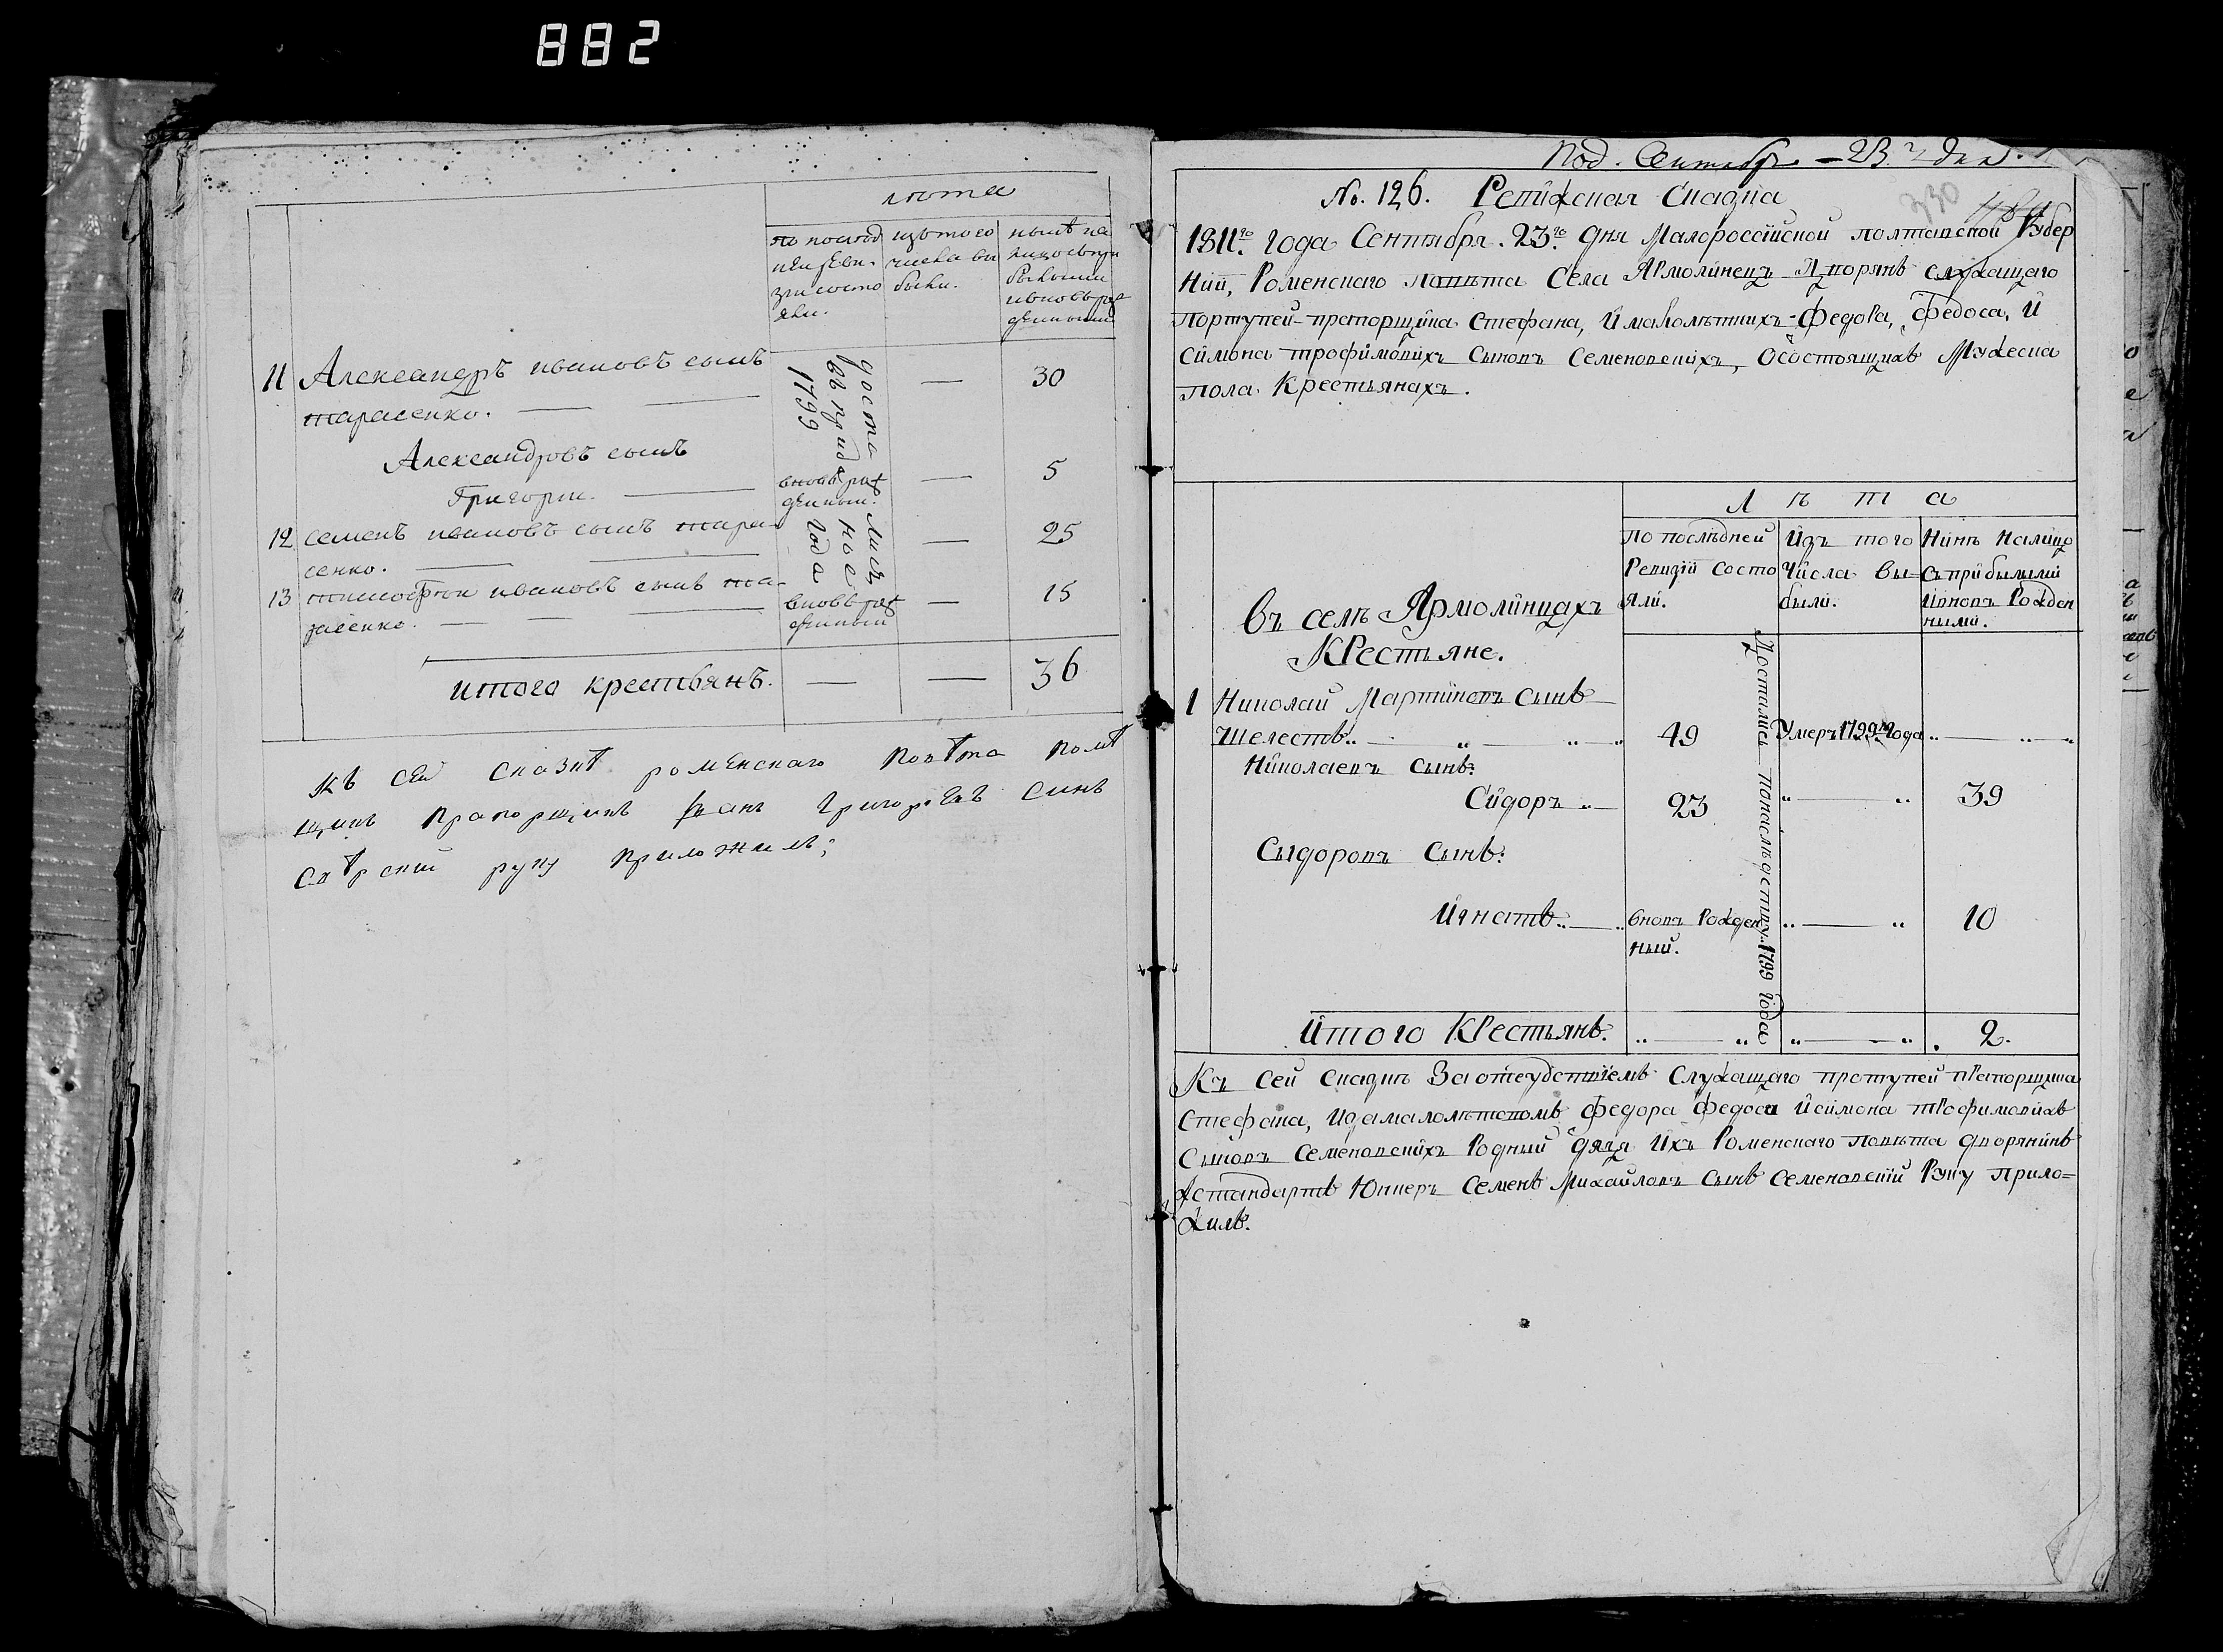 882
лѣта
по послѣд
ней реви-
зіи состо
яли.
изъ того
числа вы
были.
нынѣ на
лицо съ при
былыми
и вновь рож
денными
11 Александръ ивановъ сынъ
тарасенко. — — 30
Александровъ сынъ
Григории. — вновь рож
денный. — 5
12 семенъ ивановъ сынъ тара
сенко. — — 25
13 тимофѣи ивановъ сынъ та-
расенко. — — вновь рож
денный — 15
достались
въ приданое
1799 года
итого крестьянъ. — — 36
Къ сей сказкѣ роменскаго повѣта помѣ
щикъ прапорщикъ Иванъ Григорьевъ синъ
руку приложилъ;
Под. Сентября – 23 г дня.
330
№. 126. Ревижская Сказка
1811го года Сентября. 23го дня Малороссійской полтавской Губер
ніи, Роменскаго повѣта Села Ярмолинецъ Дворянъ служащаго
портупей-прапорщика Стефана, и малолѣтнихъ Федора, Федоса, и
Симона трофимовихъ сыновъ Семеновскихъ, осостоящихъ Мужеска
пола Крестьянахъ.
Лѣта
по послѣдней
Ревизіи состо
яли.
Изъ того
Числа вы-
были.
Нинѣ Налицо
съ прибылыми
ивновь Рожден
ными.
въ селѣ Ярмолинцахъ
Крестьяне.
1 Николай Мартиновъ сынъ
Шелестъ.. — 49 Умеръ 1799го года ..—
Николаевъ сынъ:
Сидоръ ..— 23 ..— .. 39
Сыдоровъ сынъ:
Игнатъ..—.. вновь Рожден
ный. ..— .. 10
Достались понаслѣдству 1799 года
Итого Крестьянъ. ..— .. ..— .. 2.
Къ сей сказкѣ За отсудствіемъ Служащаго пртупей прапорщика
Стефана, и замалолѣтствомъ федора федоса и симона трофимовихъ
Сыновъ Семеновскихъ Родный дядя Ихъ Роменскаго повѣта дворянинъ
Естандартъ Юнкеръ Семенъ Михайловъ сынъ Семеновскій Руку прило=
жилъ.